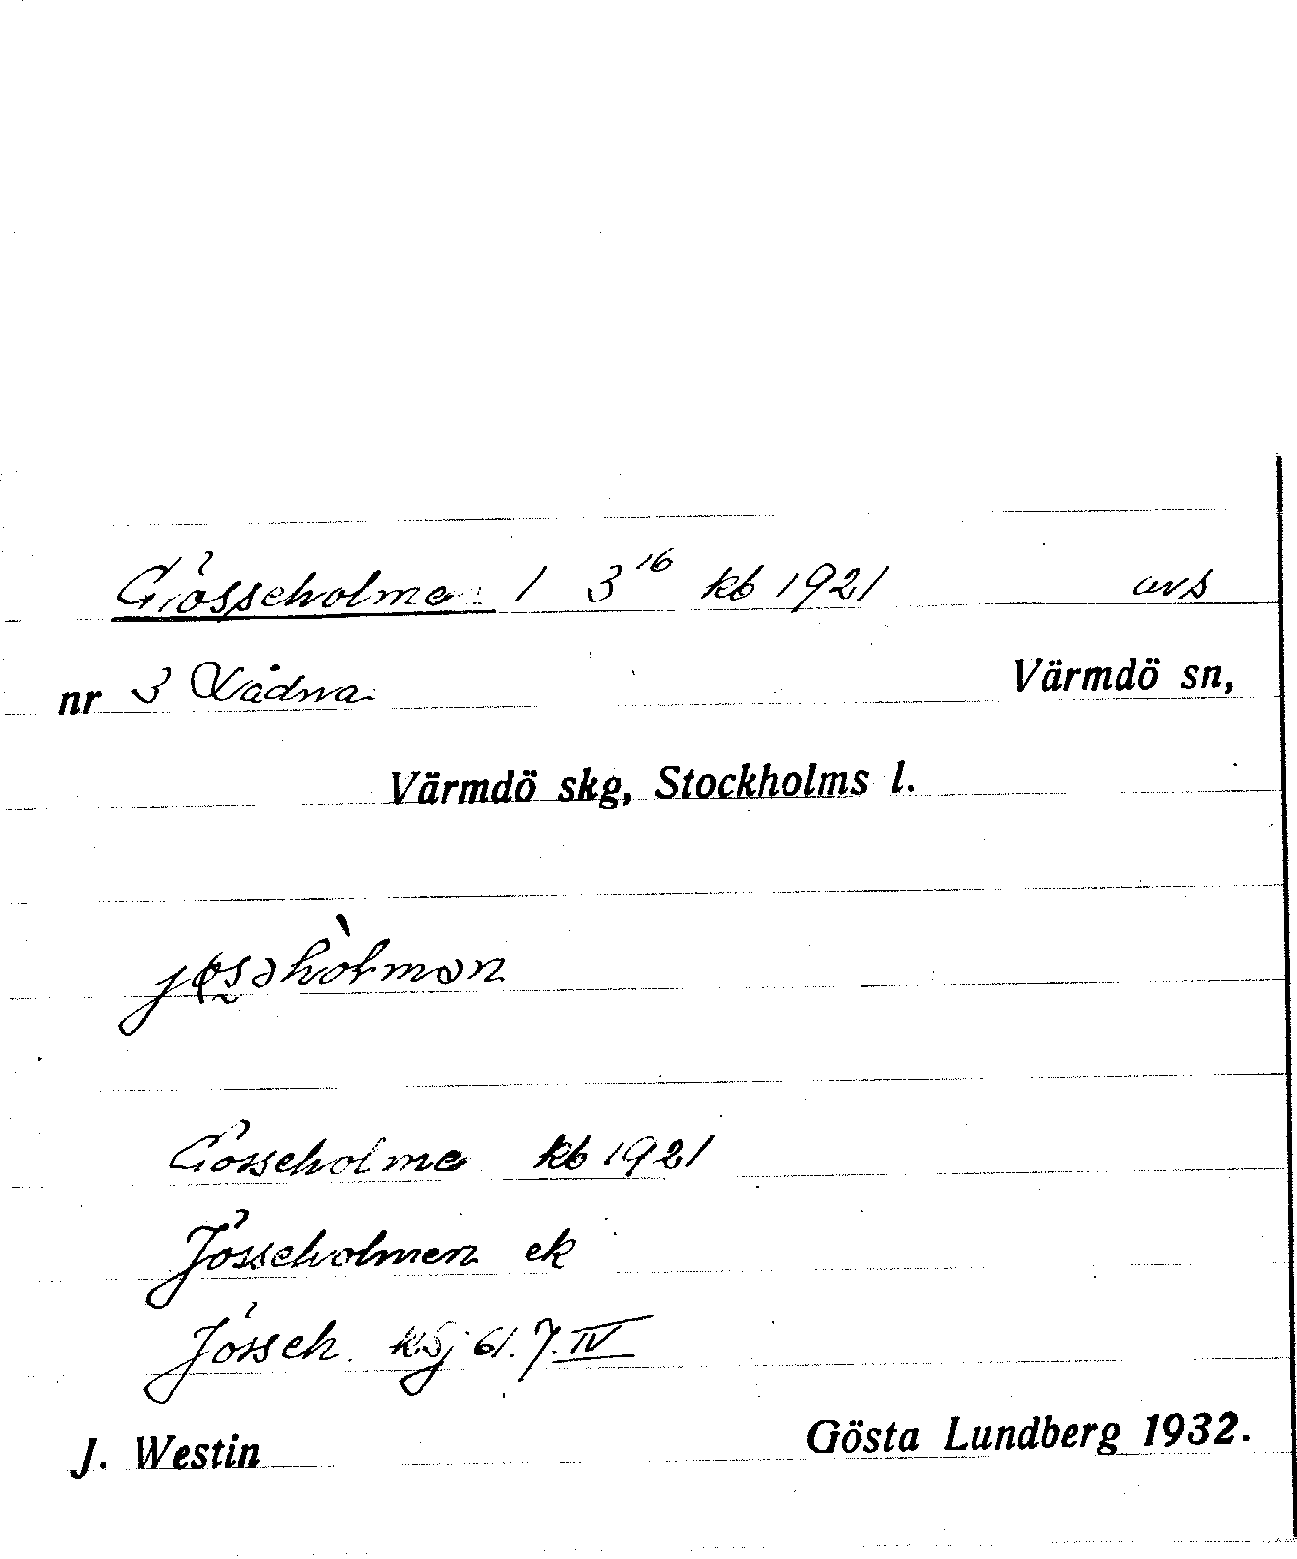 Gösseholmen 1 3¹⁶ kb 1921 avs
nr 3 Vådna Värmdö sn,
Värmdö skg, Stockholms l.
Gösseholme kb 1921
Jösseholmen ek
Jösseh. kSj 61.7.IV
J. Westin Gösta Lundberg 1932.